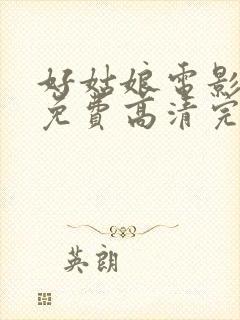 好姑娘电影
免費高清完
英朗